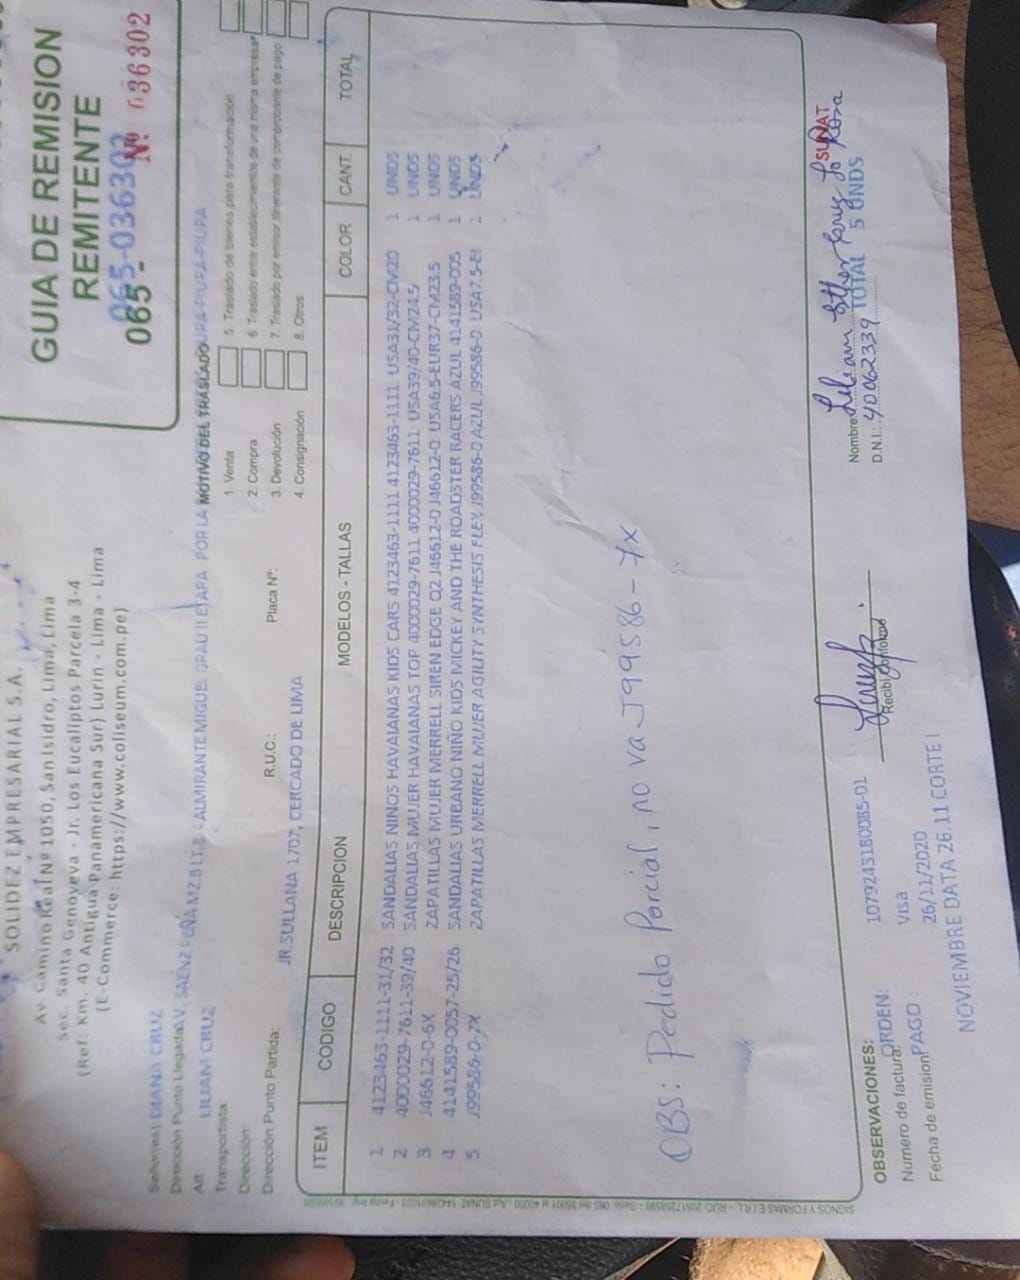 SOLIDEZ EMPRESARIAL S.A.
Av. Camino Real Nº 1050, San Isidro, Lima, Lima
Sec. Santa Genoveva - Jr. Los Eucaliptos Parcela 3-4
(Ref: Km. 40 Antigua Panamericana Sur) Lurin - Lima - Lima
(E-Commerce: https://www.coliseum.com.pe)
GUIA DE REMISION
REMITENTE
065-036302
065 - Nº 036302
Señor(es): DIANA CRUZ
Dirección Punto Llegada: AV. SAENZ PEÑA MZ.B LT.3 - ALMIRANTE MIGUEL GRAU II ETAPA POR LA
Att LILIAM CRUZ
Transportista:
Dirección: R.U.C.: Placa Nº:
Dirección Punto Partida: JR.SULLANA 1707, CERCADO DE LIMA
MOTIVO DEL TRASLADO
1. Venta
2. Compra
3. Devolución
4. Consignación
5. Traslado de bienes para transformación
6. Traslado entre establecimientos de una misma empresa
7. Traslado por emisor itinerante de comprobante de pago
8. Otros
ITEM CODIGO DESCRIPCION MODELOS - TALLAS COLOR CANT. TOTAL
1 4123463-1111-31/32 SANDALIAS NINOS HAVAIANAS KIDS CARS 4123463-1111 4123463-1111 USA31/32-CM20 1 UNDS
2 4000029-7611-39/40 SANDALIAS MUJER HAVAIANAS TOP 4000029-7611 4000029-7611 USA39/40-CM24.5 1 UNDS
3 J46612-0-6X ZAPATILLAS MUJER MERRELL SIREN EDGE Q2 J46612-0 J46612-0 USA6.5-EUR37-CM23.5 1 UNDS
4 4141589-0057-25/26 SANDALIAS URBANO NIÑO KIDS MICKEY AND THE ROADSTER RACERS AZUL 4141589-005 1 UNDS
5 J99586-0-7X ZAPATILLAS MERREL MUJER AGILITY SYNTHESIS FLEX J99586-0 AZUL J99586-0 USA7.5-EI 1 UNDS
OBS: Pedido Parcial, no va J99586-7X
OBSERVACIONES:
ORDEN: 1079243180085-01
Numero de factura:
PAGO : Visa
Fecha de emision 26/11/2020
NOVIEMBRE DATA 26.11 CORTE I
Recibi Conforme
Nombre:
D.N.I.: 40062339
TOTAL 5 UNDS
SUNAT